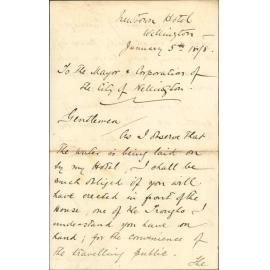 Newtown Hotel
Wellington —
January 5th 1878.
To The Mayor & Corporation of
the City of Wellington.
Gentlemen
As I observe that
the water is being laid on
by my Hotel, I shall be
much obliged if you will
have erected in front of the
House, one of the Troughs I
understand you have on
hand; for the convenience of
the travelling public.
The